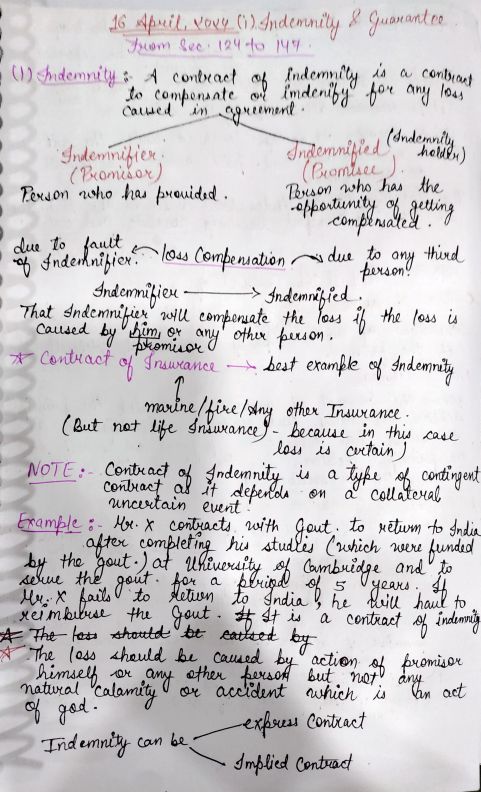 16 April, 2024 (i) Indemnity & Guarantee
From Sec. 124 to 147.
(1) Indemnity :- A contract of indemnity is a contract
to compensate or imdenify for any loss
caused in agreement.
Indemnifier (Promisor)
Indemnified (Promisee) (Indemnity holder)
Person who has provided.
Person who has the
opportunity of getting
compensated.
due to fault of Indemnifier. ← loss Compensation → due to any third person.
Indemnifier → Indemnified.
That Indemnifier will compensate the loss if the loss is
caused by him or any other person.
promisor
* Contract of Insurance → best example of Indemnity
marine/fire/Any other Insurance.
(But not life Insurance) - because in this case
loss is certain)
NOTE :- Contract of Indemnity is a type of contingent
contract as it depends on a collateral
uncertain event.
Example :- Mr. X contracts with Govt. to return to India
after completing his studies (which were funded
by the Govt.) at University of Cambridge and to
serve the govt. for a period of 5 years. If
Mr. X fails to return to India, he will have to
reimburse the Govt. If It is a contract of indemnity
* The loss should be caused by
* The loss should be caused by action of promisor
himself or any other person but not any
natural calamity or accident which is an act
of god.
Indemnity can be
express Contract
Implied Contract